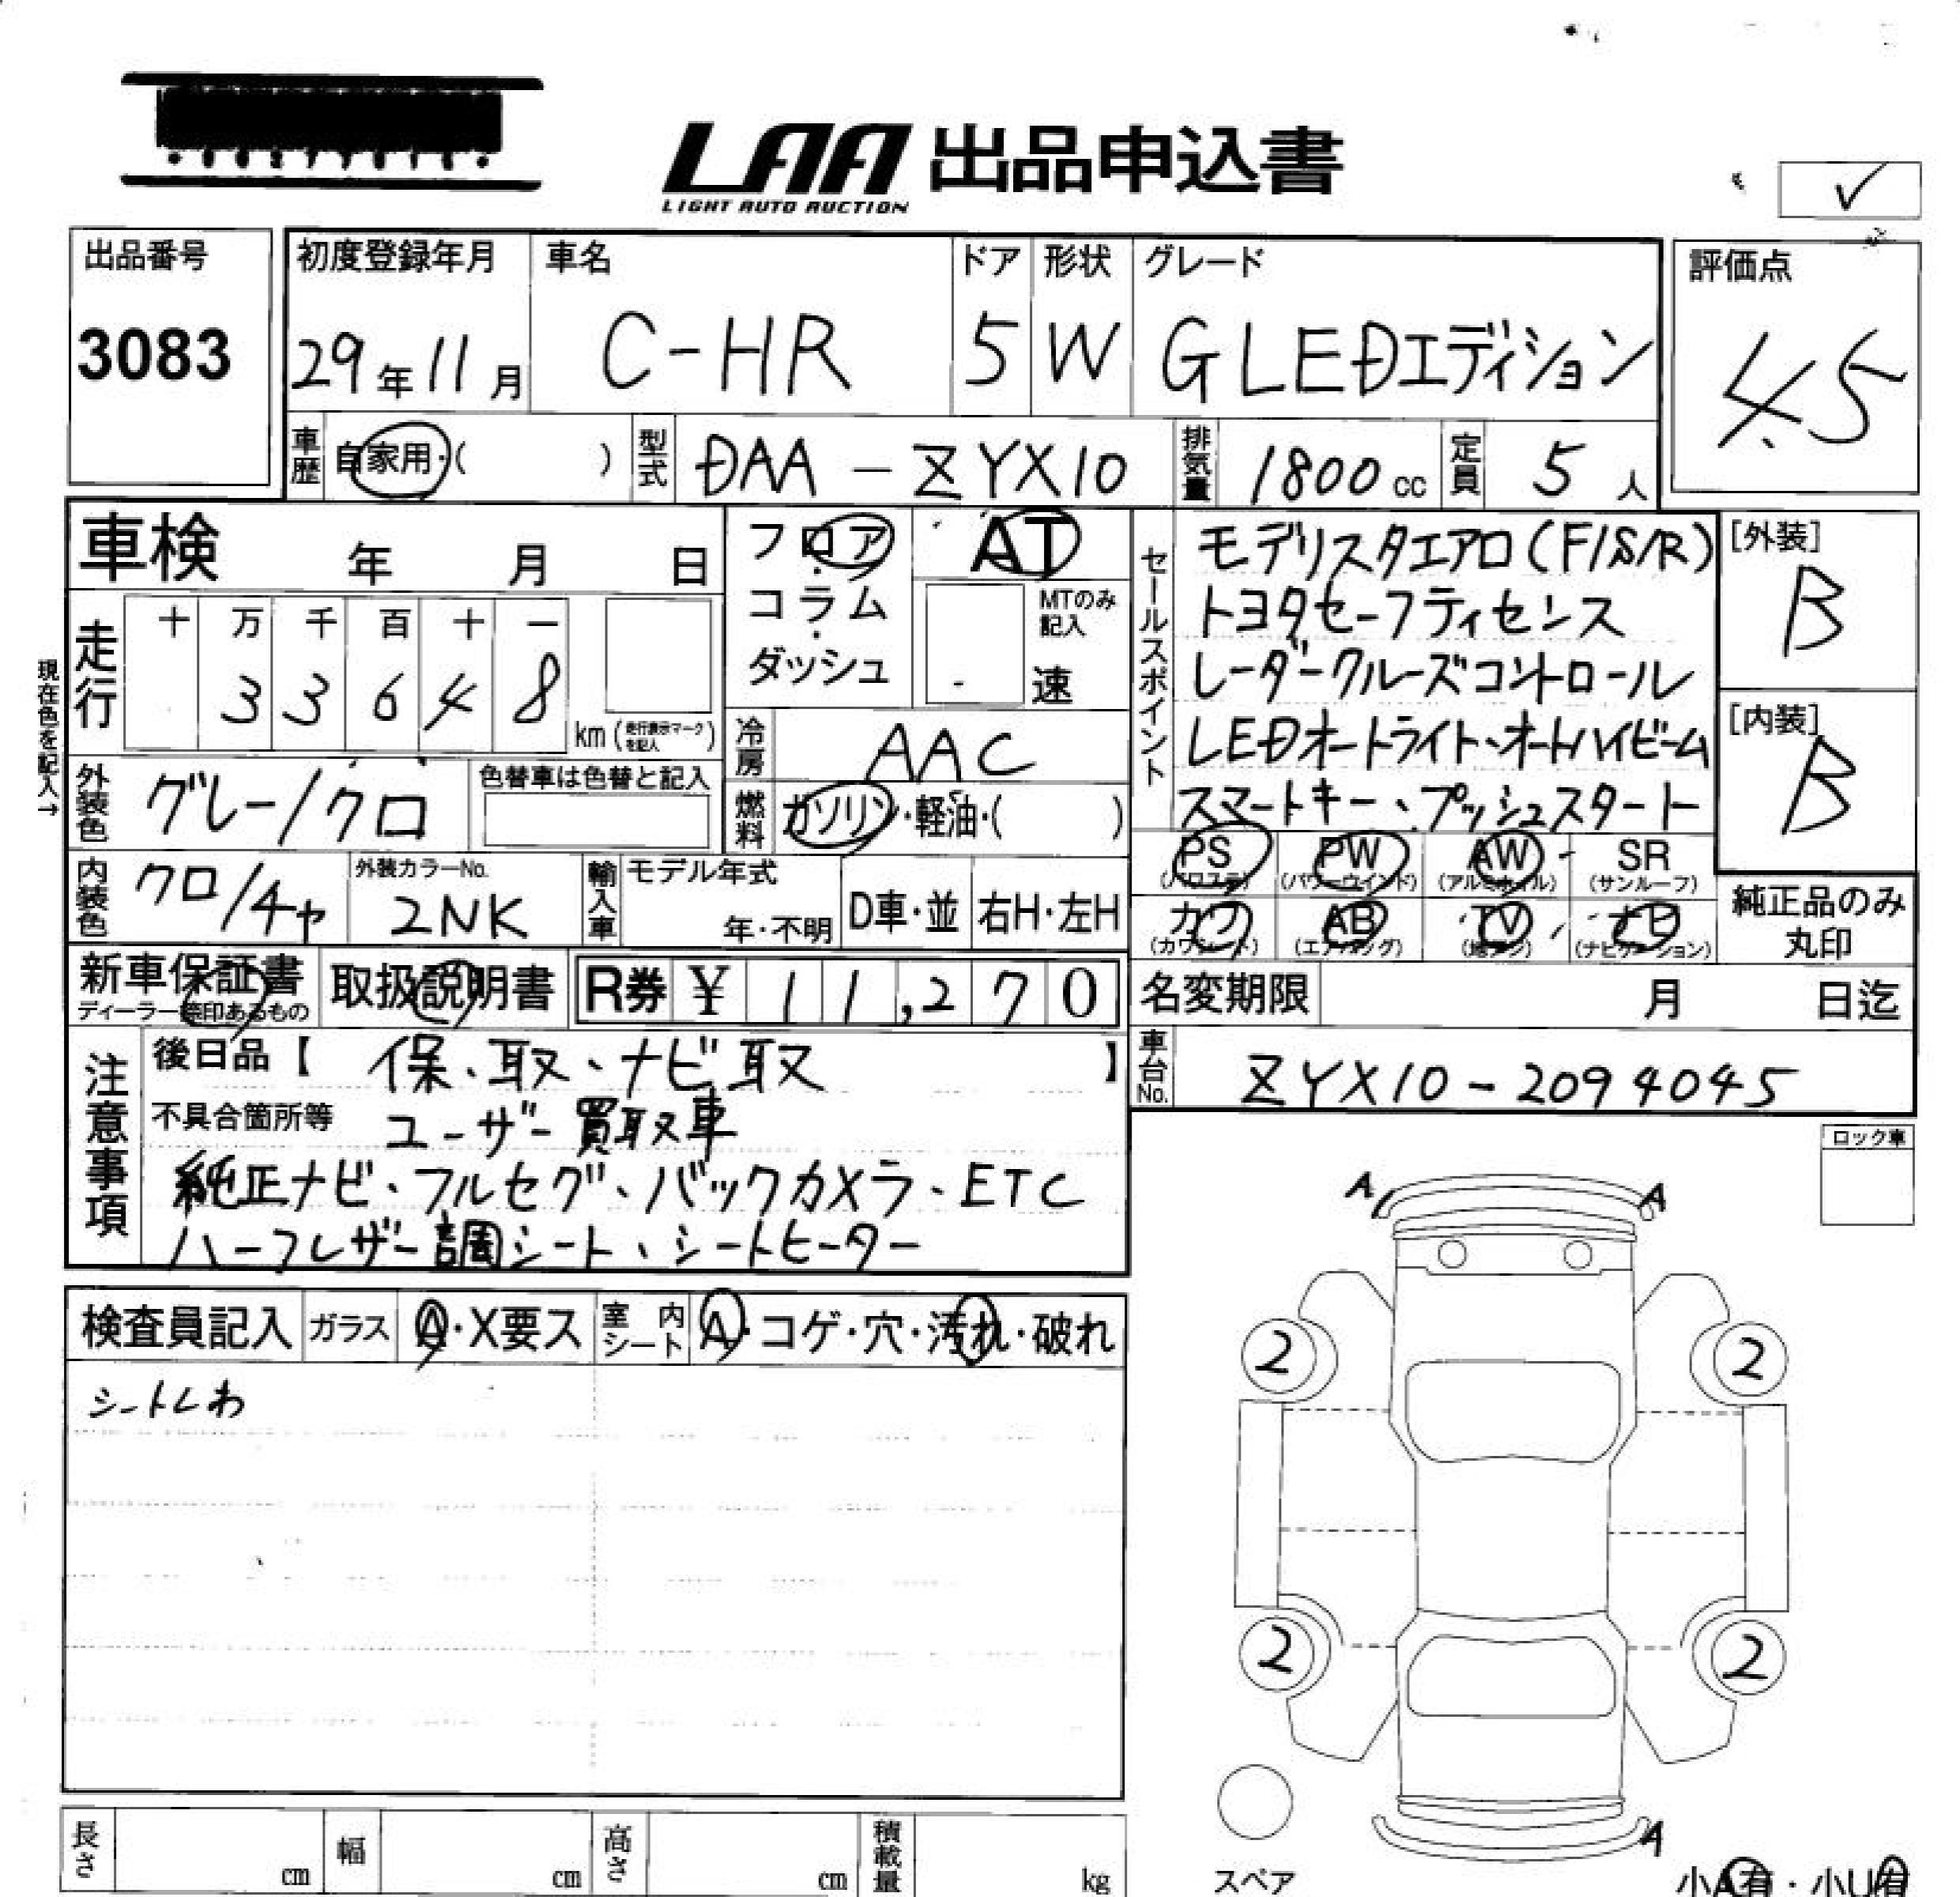 LAA 出品申込書
LIGHT AUTO AUCTION
✓
出品番号
3083
初度登録年月
29年11月
車名
C-HR
ドア
5
形状
W
グレード
G LEDエディション
評価点
4.5
車歴
自家用・( )
型式
DAA-ZYX10
排気量
1800cc
定員
5人
車検
年 月 日
走行
十 万 千 百 十 一
3 3 6 4 8
km(走行表示マークを記入)
現在色を記入→
外装色
グレー/クロ
色替車は色替と記入
内装色
クロ/チャ
外装カラーNo.
2NK
フロア・コラム・ダッシュ
AT
MTのみ記入
速
冷房
AAC
燃料
ガソリン・軽油・( )
輸入車
モデル年式
年・不明
D車・並
右H・左H
セールスポイント
モデリスタエアロ(F/S/R)
トヨタセーフティセンス
レーダークルーズコントロール
LEDオートライト、オートハイビーム
スマートキー、プッシュスタート
[外装]
B
[内装]
B
PS (パワステ)
PW (パワーウインド)
AW (アルミホイル)
SR (サンルーフ)
カワ (カワシート)
AB (エアバッグ)
TV (地デジ)
ナビ (ナビゲーション)
純正品のみ
丸印
新車保証書
ディーラー捺印あるもの
取扱説明書
R券 ¥ 11,270
名変期限
月 日迄
車台No.
ZYX10-2094045
注意事項
後日品【 保、取、ナビ取 】
不具合箇所等 ユーザー買取車
純正ナビ、フルセグ、バックカメラ、ETC
ハーフレザー調シート、シートヒーター
ロック車
検査員記入
ガラス
A・X要ス
室内シート
A・コゲ・穴・汚れ・破れ
シートしわ
A A
2 2
2 2
A
スペア
小A有・小U有
長さ cm
幅 cm
高さ cm
積載量 kg